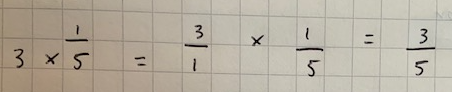 3 × 1/5 = 3/1 × 1/5 = 3/5